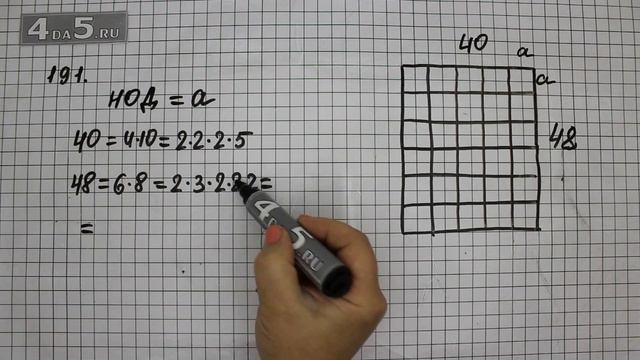 4DA5.RU
191.
НОД = a
40 = 4·10 = 2·2·2·5
48 = 6·8 = 2·3·2·2·2 =
=
40
a
a
48
4DA5.RU